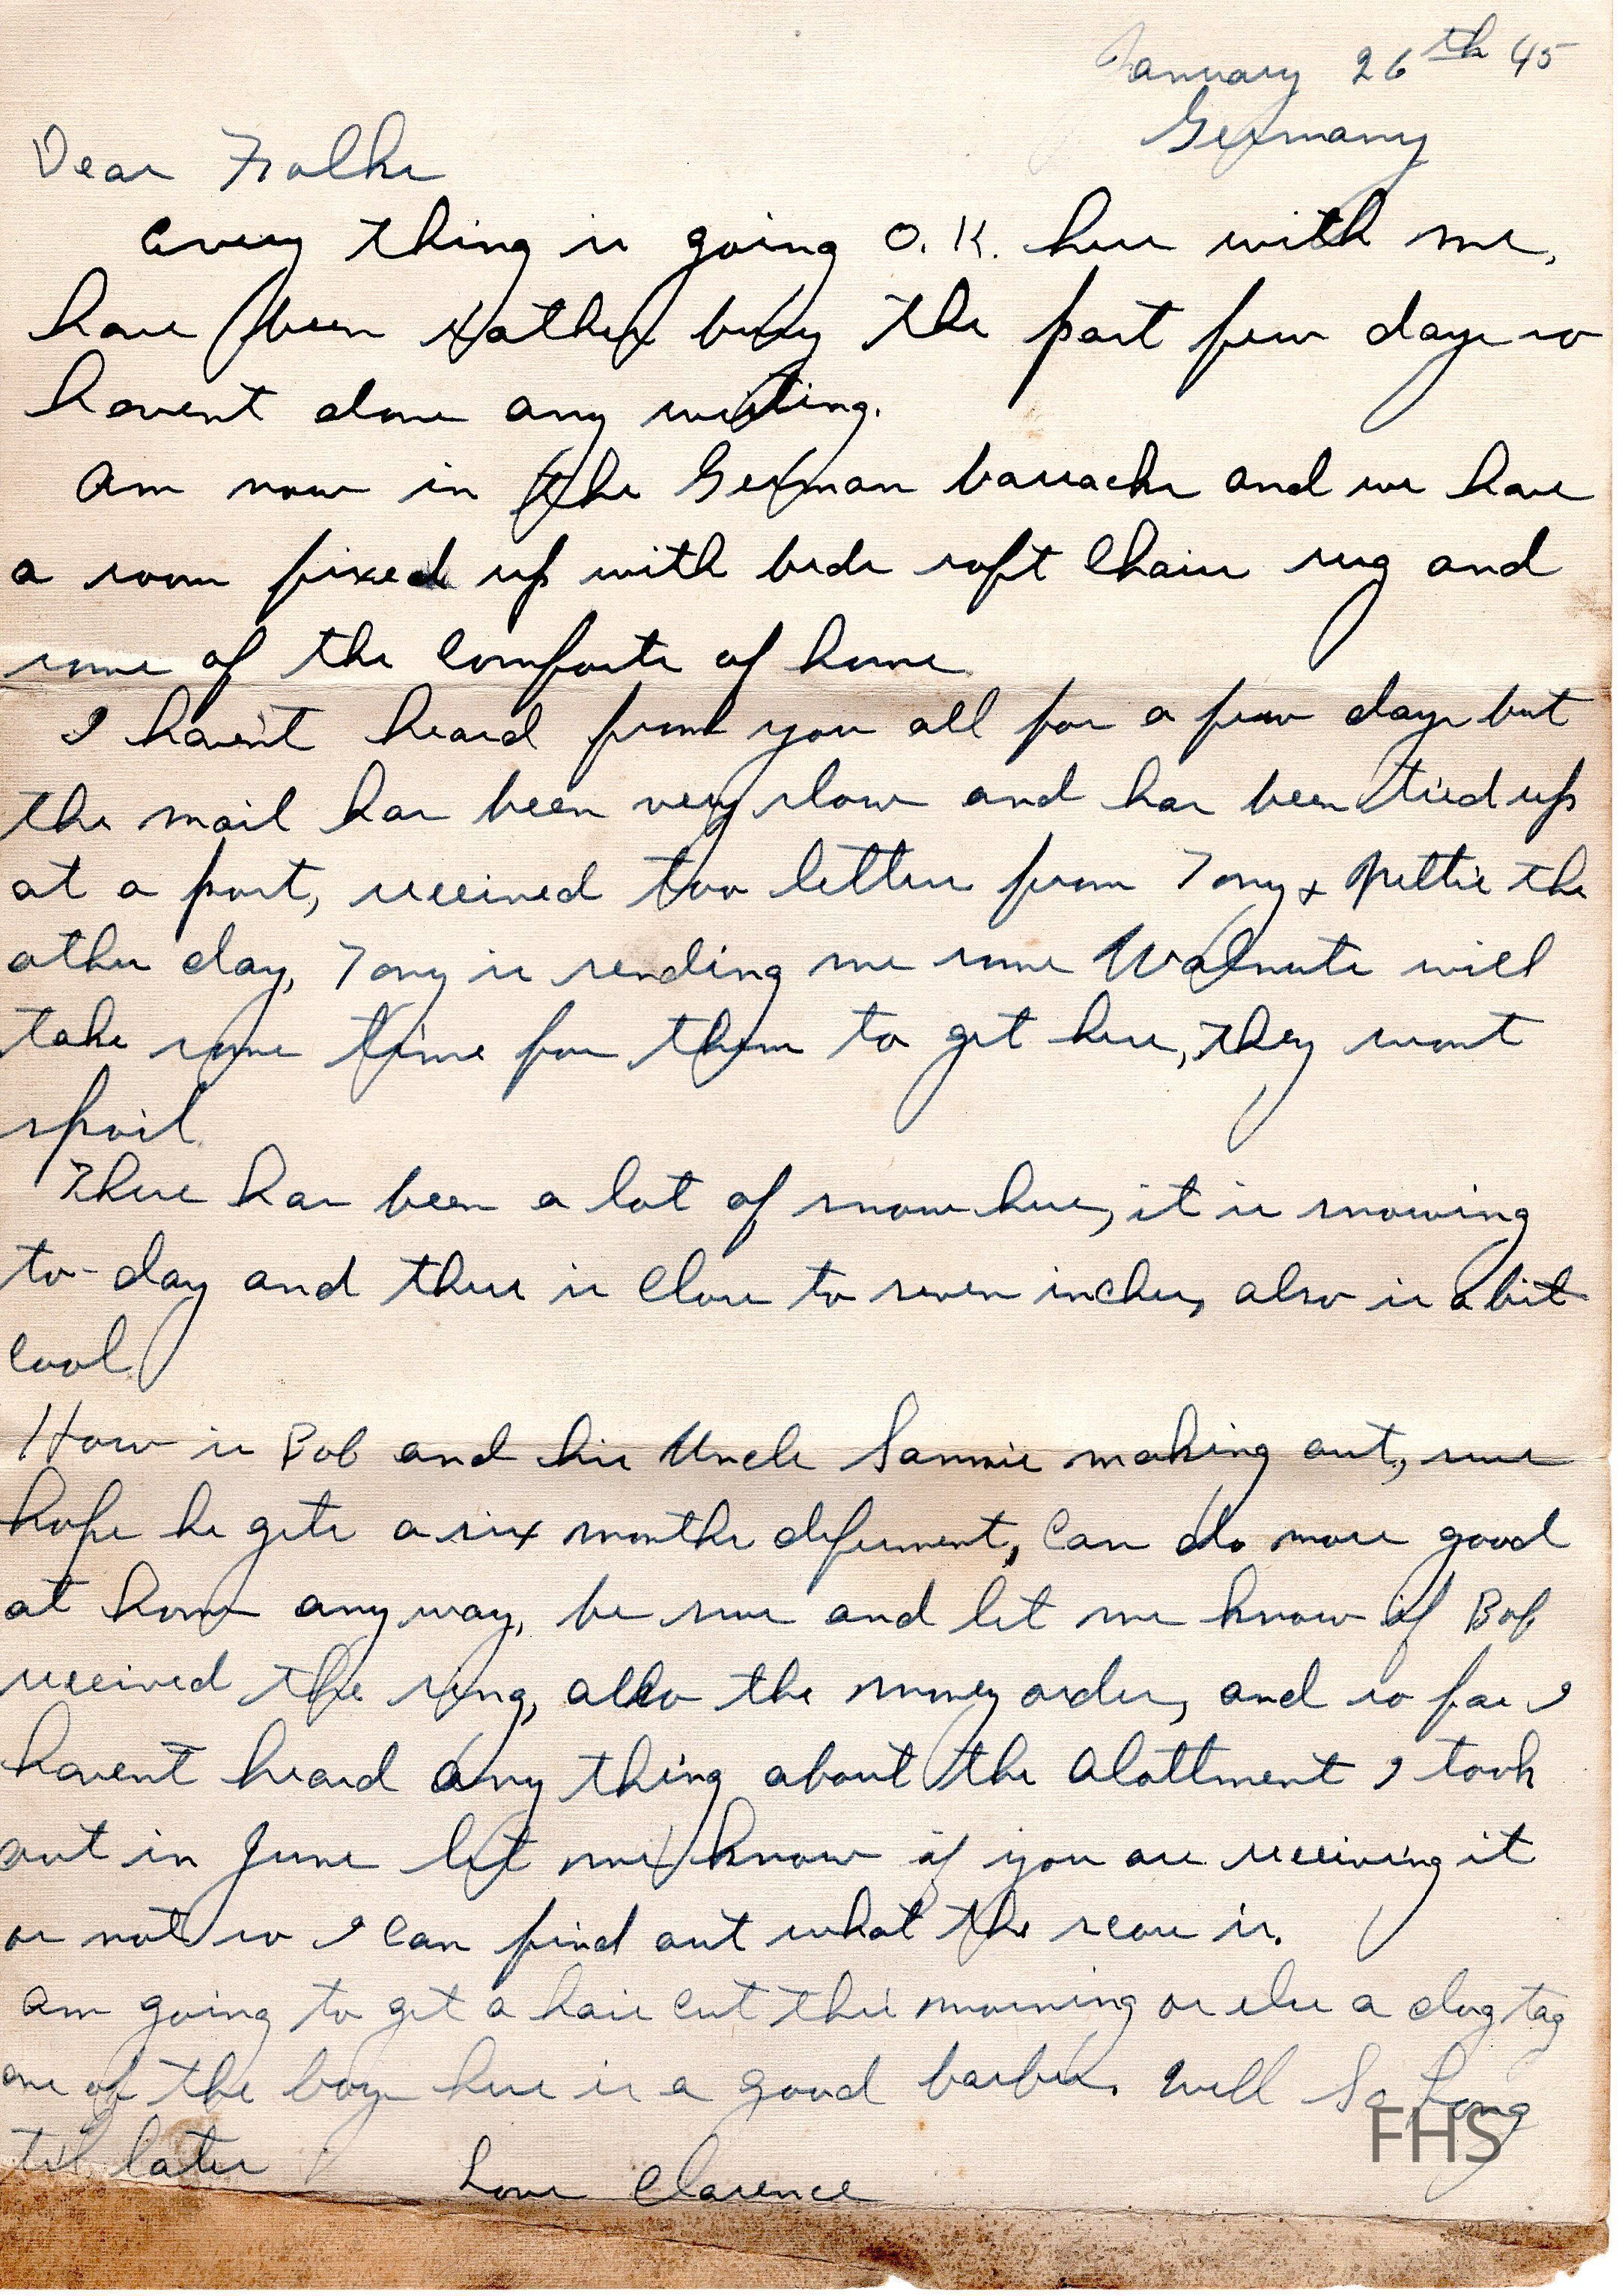 January 26th 45
Germany
Dear Folks
Every thing is going O.K. here with me,
have been rather busy the past few days so
havent done any writing.
Am now in the German barracks and we have
a room fixed up with beds soft chairs rug and
some of the comforts of home
I haven't heard from you all for a few days but
the mail has been very slow and has been tied up
at a port, received two letters from Tony & Nettie the
other day, Tony is sending me some Walnuts will
take some time for them to get here, they wont
spoil.
There has been a lot of snow here, it is snowing
to-day and there is close to seven inches, also is a bit
cool.
How is Bob and his Uncle Sammie making out, sure
hope he gets a six months deferment, can do more good
at home any way, be sure and let me know if Bob
received the ring, also the money order, and so far I
havent heard any thing about the alottment I took
out in June let me know if you are receiving it
or not so I can find out what the score is.
Am going to get a hair cut this morning or else a dog tag
one of the boys here is a good barber. Well So Long
til later
Love Clarence
FHS